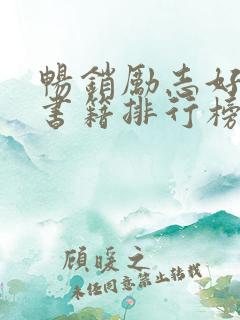 暢銷勵志好
書籍排行榜
顧暖之
未经同意禁止转载